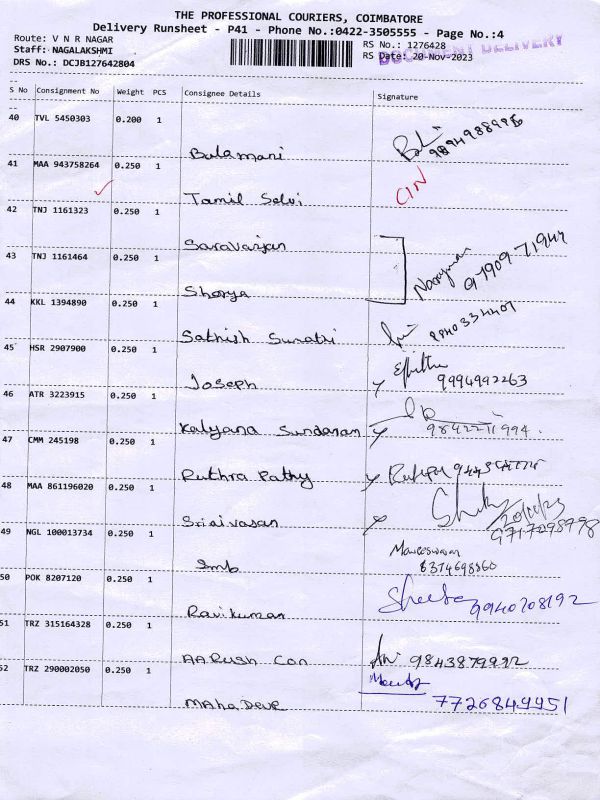 THE PROFESSIONAL COURIERS, COIMBATORE
Delivery Runsheet - P41 - Phone No.:0422-3505555 - Page No.:4
Route: V N R NAGAR
Staff: NAGALAKSHMI
DRS No.: DCJB127642804
RS No.: 1276428
RS Date: 20-Nov-2023
DOCUMENT DELIVERY
S No Consignment No Weight PCS Consignee Details Signature
40 TVL 5450303 0.200 1
Balamani
41 MAA 943758264 0.250 1
Tamil Selvi CIN
42 TNJ 1161323 0.250 1
Saravanan
43 TNJ 1161464 0.250 1
Shorya Narayanan
44 KKL 1394890 0.250 1
Sathish Sumathi
45 HSR 2907900 0.250 1
Joseph 9994992263
46 ATR 3223915 0.250 1
Kalyana Sundaram
47 CMM 245198 0.250 1
Ruthra Pathy
48 MAA 861196020 0.250 1
Srinivasan 9717298798
49 NGL 100013734 0.250 1
Smb 8374698860
50 POK 8207120 0.250 1
Ravikumar 9940208192
51 TRZ 315164328 0.250 1
AARUSH Con
52 TRZ 290002050 0.250 1
MAHADEVE 7726849951